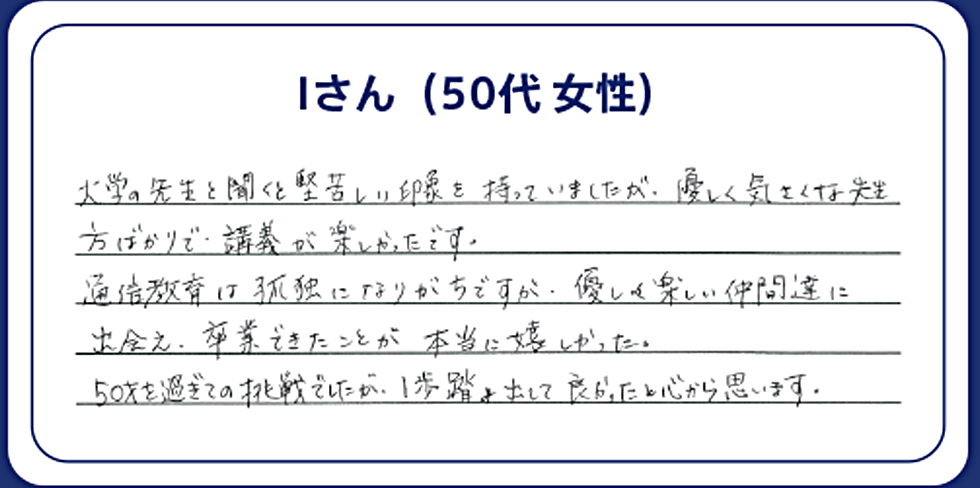 Iさん（50代 女性）
大学の先生と聞くと堅苦しい印象を持っていましたが、優しく気さくな先生
方ばかりで、講義が楽しかったです。
通信教育は孤独になりがちですが、優しく楽しい仲間達に
出会え、卒業できたことが本当に嬉しかった。
50才を過ぎての挑戦でしたが、1歩踏み出して良かったと心から思います。